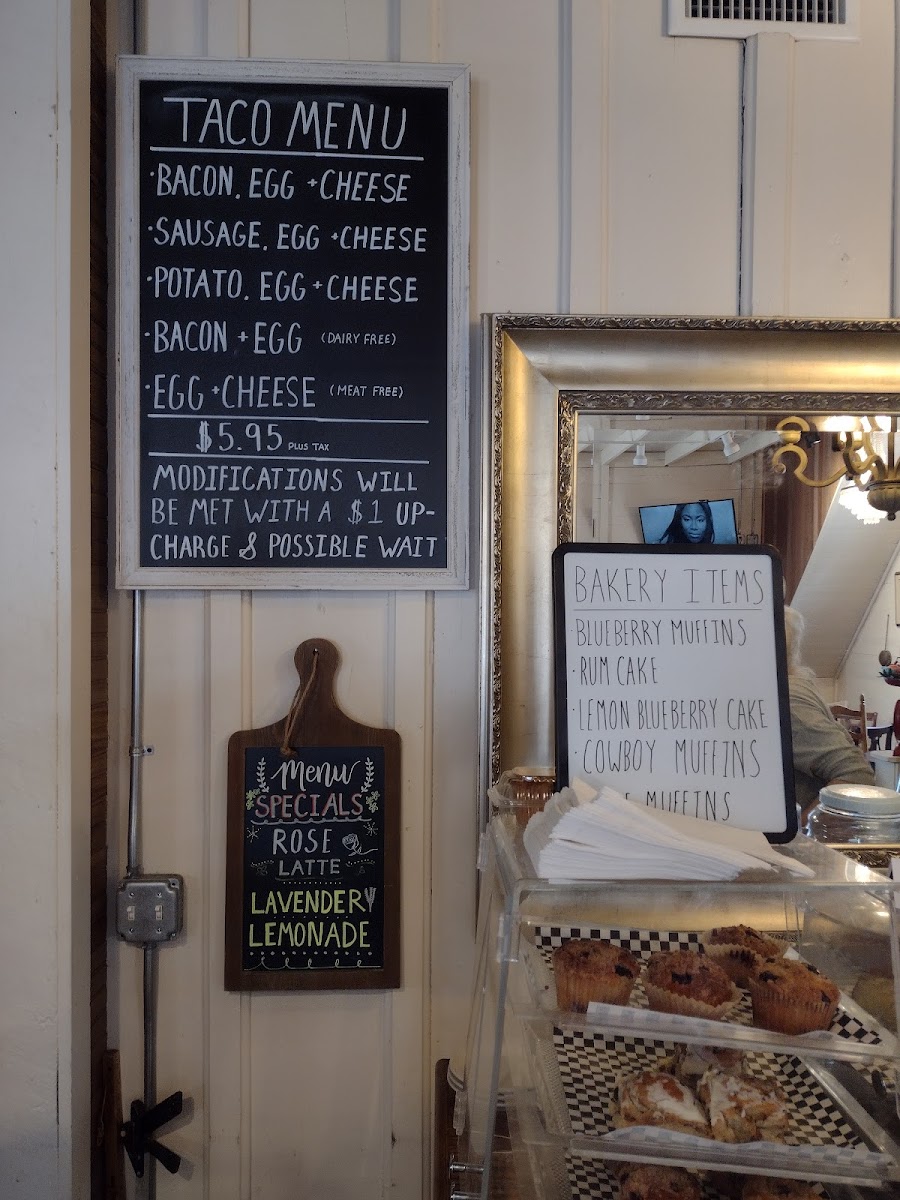 TACO MENU
·BACON, EGG +CHEESE
·SAUSAGE, EGG +CHEESE
·POTATO, EGG +CHEESE
·BACON +EGG (DAIRY FREE)
·EGG +CHEESE (MEAT FREE)
$5.95 PLUS TAX
MODIFICATIONS WILL
BE MET WITH A $1 UP-
CHARGE & POSSIBLE WAIT
Menu
SPECIALS
ROSE
LATTE
LAVENDER
LEMONADE
BAKERY ITEMS
·BLUEBERRY MUFFINS
·RUM CAKE
·LEMON BLUEBERRY CAKE
·COWBOY MUFFINS
MUFFINS